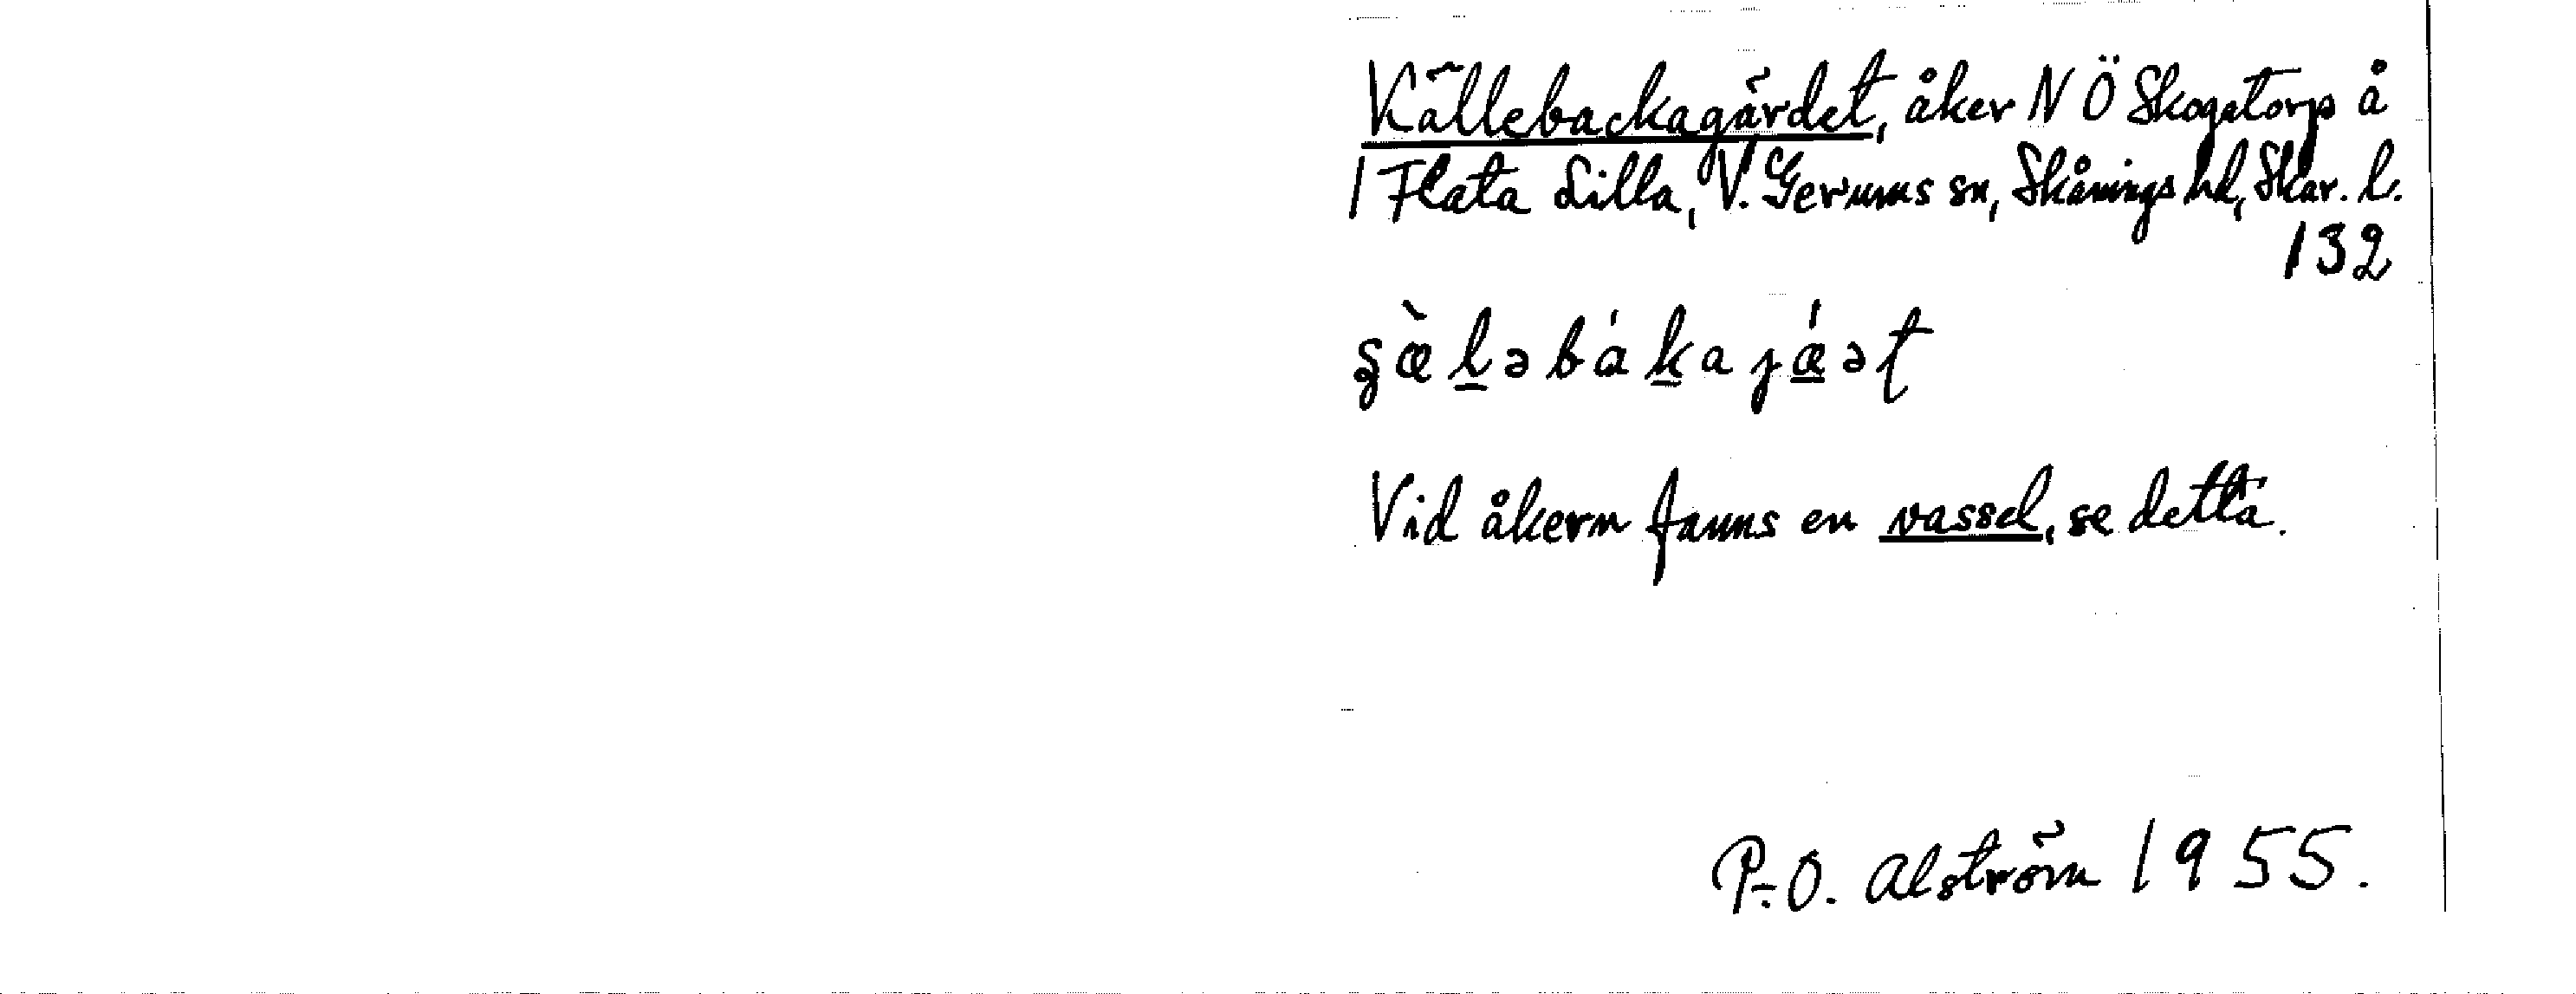 Källebackagärdet, åker NÖ Skogatorp å
1 Flata Lilla, V. Gerums sn, Skånings hd, Skar. l.
132
Vid åkern fanns en vassel, se detta.
P.-O. Alström 1955.